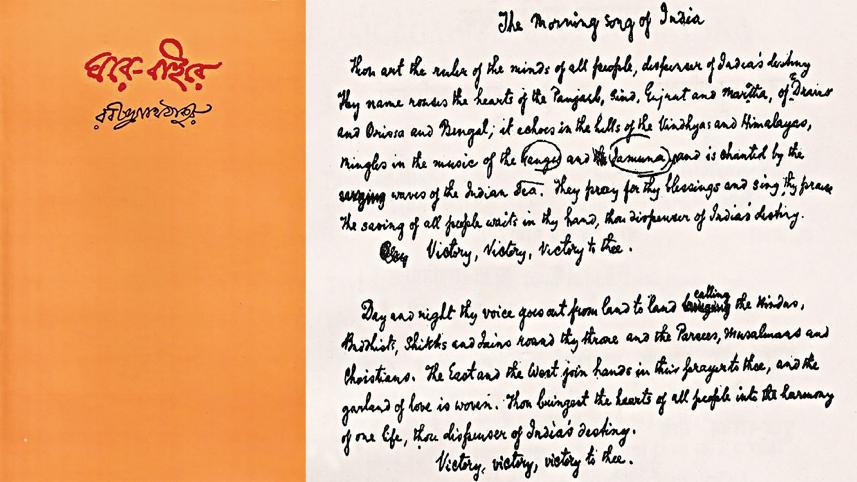 ঘরে-বাইরে
রবীন্দ্রনাথ ঠাকুর
The Morning song of India
Thou art the ruler of the minds of all people, dispenser of India's destiny
Thy name rouses the hearts of the Panjab, Sind, Gujrat and Maratha, of Dravid
and Orissa and Bengal; it echoes in the hills of the Vindhyas and Himalayas,
mingles in the music of the Ganges and Jamuna, and is chanted by the
waves of the Indian Sea. They pray for thy blessings and sing thy praise
The saving of all people waits in thy hand, thou dispenser of India's destiny.
Victory, Victory, Victory to thee.
Day and night thy voice goes out from land to land calling the Hindus,
Buddhists, Shikhs and Jains round thy throne and the Parsees, Musalmans and
Christians. The East and the West join hands in their prayer to thee, and the
garland of love is woven. Thou bringest the hearts of all people into the harmony
of one life, thou dispenser of India's destiny.
Victory, victory, victory to thee.